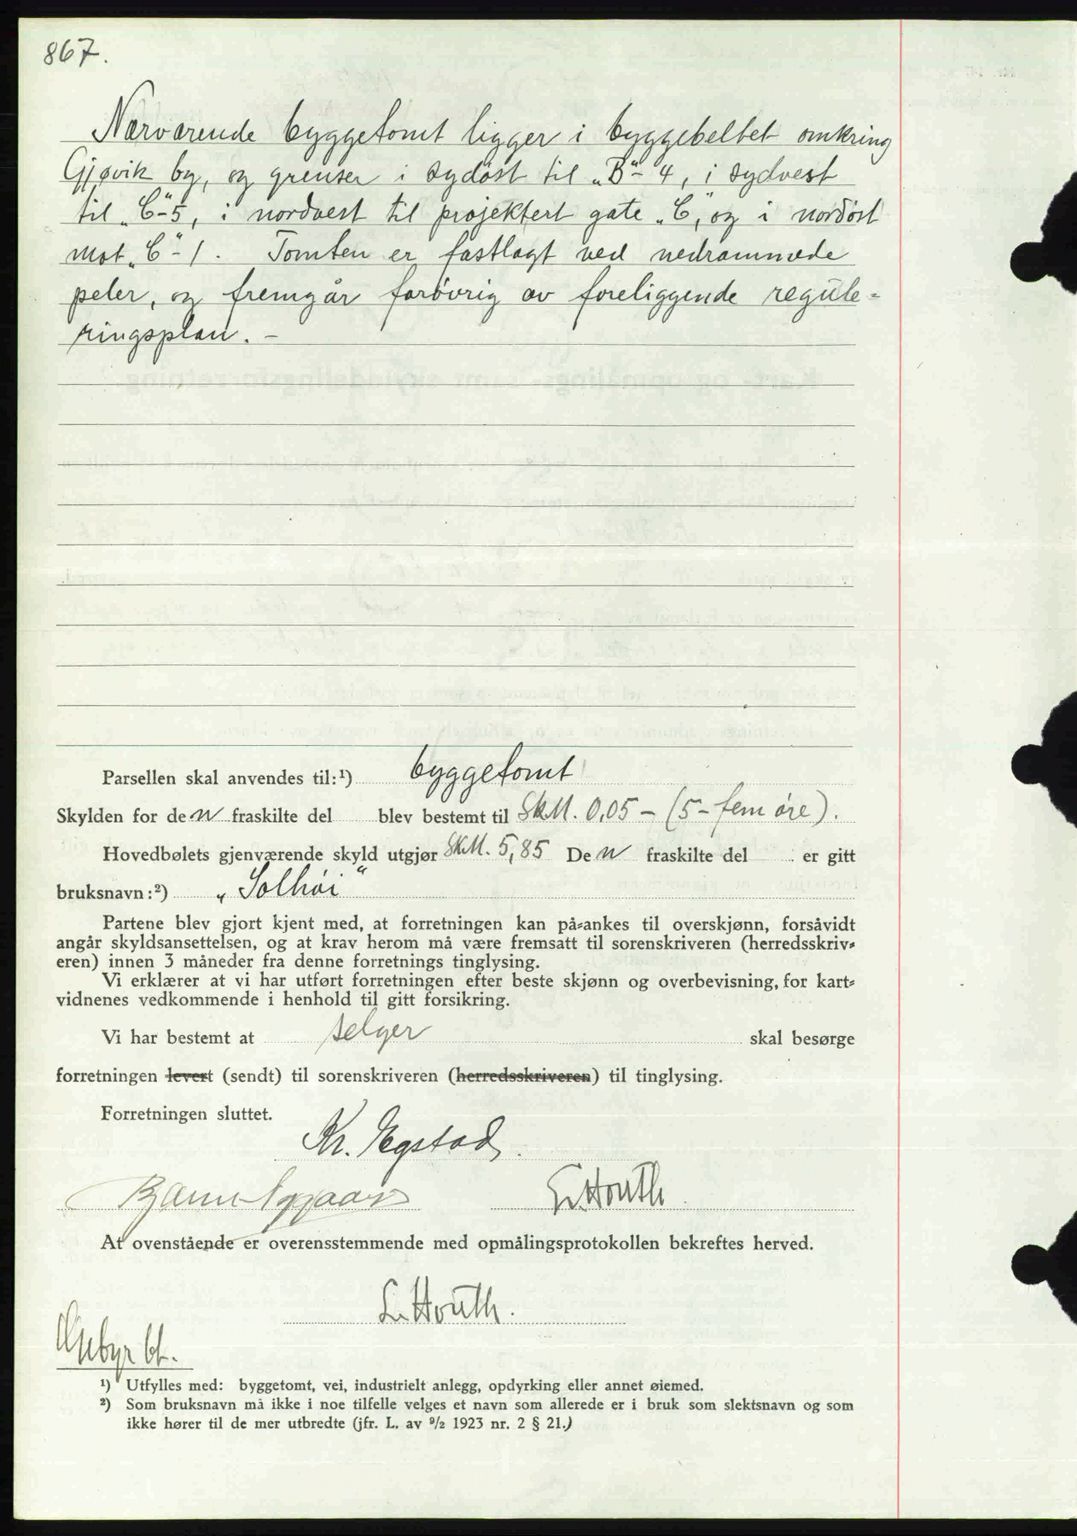 867.
Nærværende byggetomt ligger i byggebeltet omkring
Gjøvik by, og grenser i sydøst til „B"-4, i sydvest
til „C"-5, i nordvest til projektert gate „C", og i nordøst
mot „C"-1. Tomten er fastlagt ved nedrammede
peler, og fremgår forøvrig av foreliggende regule=
ringsplan. -
Parsellen skal anvendes til:¹) byggetomt
Skylden for den fraskilte del blev bestemt til Sk.M. 0,05 - (5 - fem øre).
Hovedbølets gjenværende skyld utgjør Sk.M. 5,85 Den fraskilte del er gitt
bruksnavn:²) „Solhøi"
Partene blev gjort kjent med, at forretningen kan på=ankes til overskjønn, forsåvidt
angår skyldsansettelsen, og at krav herom må være fremsatt til sorenskriveren (herredsskriv=
eren) innen 3 måneder fra denne forretnings tinglysing.
Vi erklærer at vi har utført forretningen efter beste skjønn og overbevisning, for kart=
vidnenes vedkommende i henhold til gitt forsikring.
Vi har bestemt at selger skal besørge
forretningen levert (sendt) til sorenskriveren (herredsskriveren) til tinglysing.
Forretningen sluttet.
Kr. Egstad.
Bjarne
E. Houth.
At ovenstående er overensstemmende med opmålingsprotokollen bekreftes herved.
E. Houth.
Gebyr bt.
¹) Utfylles med: byggetomt, vei, industrielt anlegg, opdyrking eller annet øiemed.
²) Som bruksnavn må ikke i noe tilfelle velges et navn som allerede er i bruk som slektsnavn og som
ikke hører til de mer utbredte (jfr. L. av 9/2 1923 nr. 2 § 21.)